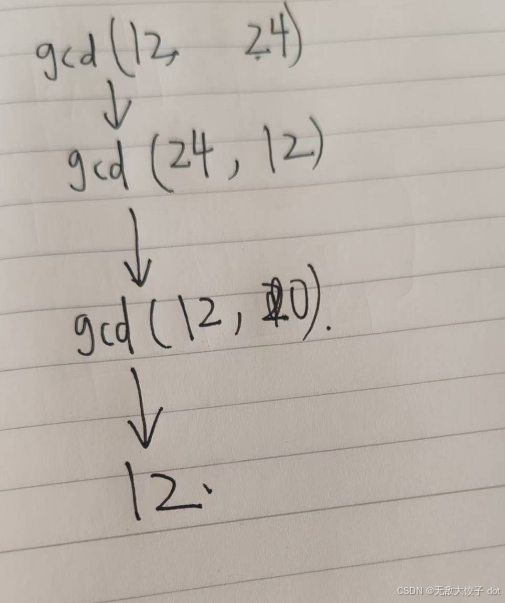 gcd(12, 24)
↓
gcd(24, 12)
↓
gcd(12, 0).
↓
12.
CSDN @无敌大饺子 dot